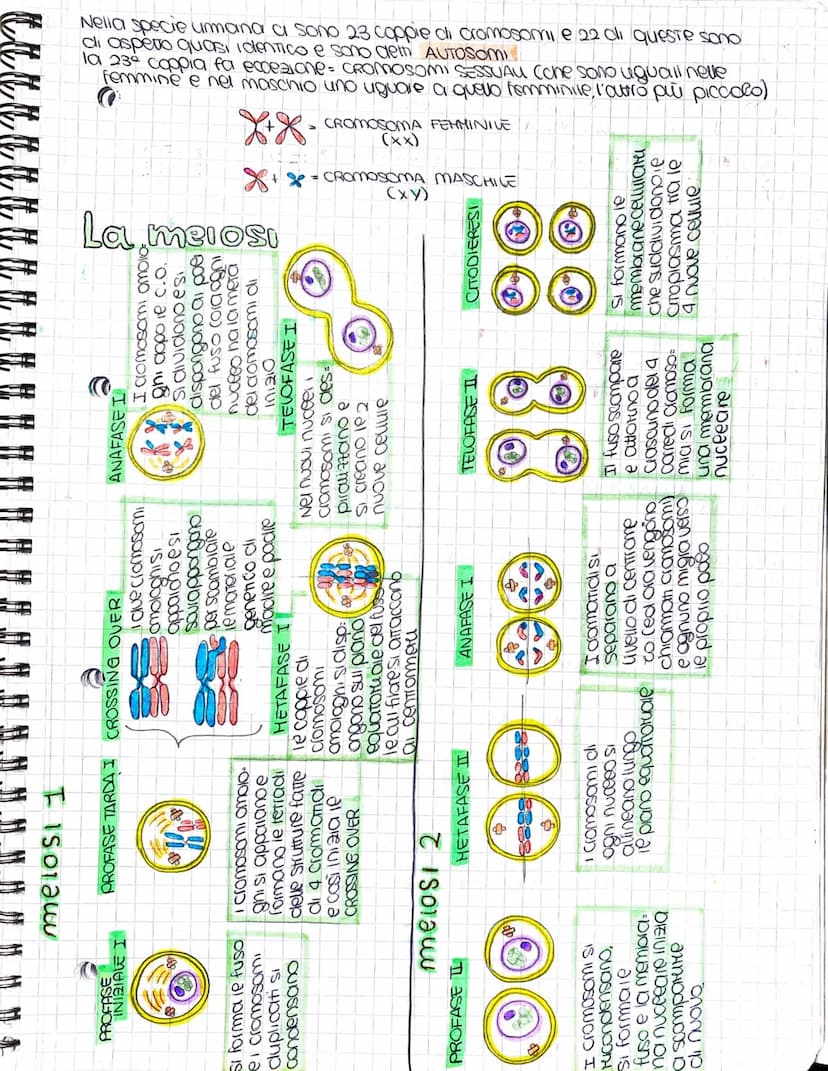 Nella specie umana ci sono 23 coppie di cromosomi e 22 di queste sono
di aspetto quasi identico e sono detti AUTOSOMI
la 23° coppia fa eccezione = CROMOSOMI SESSUALI (che sono uguali nelle
femmine e nel maschio uno uguale a quello femminile, l'altro più piccolo)
+ = CROMOSOMA FEMMINILE
(XX)
+ = CROMOSOMA MASCHILE
(XY)
La meiosi
meiosi 1
PROFASE
INIZIALE I
Si forma le fuso
e i cromosomi
duplicati si
condensano
PROFASE TARDA I
I cromosomi omolo-
ghi si appaiano e
formano le tetradi
delle strutture fatte
di 4 cromatidi
e così inizia le
CROSSING OVER
CROSSING OVER
I due cromosomi
omologhi si
appaiano e si
sovrappongono
per scambiare
le materiale
genetico di
madre e padre
METAFASE I
le coppie di
cromosomi
omologhi si disp-
ongono sul piano
equatoriale del fuso
le cui fibre si attaccano
ai centromeri
ANAFASE I
I cromosomi omolo
ghi dopo le c.o.
Si dividono e si
dispongono ai poli
del fuso così ogni
nucleo ha la metà
dei cromosomi di
inizio
TELOFASE I
Nei nuovi nuclei i
cromosomi si des=
piralizzano e
si creano le 2
nuove cellule
meiosi 2
PROFASE II
I cromosomi si
ricondensano,
si forma le
fuso e la membra-
na nucleare inizia
a scomparire
di nuovo
METAFASE II
I cromosomi di
ogni nucleo si
allineano lungo
le piano equatoriale
ANAFASE I
I cromatidi si
separano a
livello di centrome
ro (ed ora vengono
chiamati cromosomi)
e ognuno migra verso
le proprio polo
TELOFASE II
Il fuso scompare
e attorno a
ciascuno dei 4
corredi cromoso=
mici si forma
una membrana
nucleare
CITODIERESI
Si formano le
membrane cellulari
che suddividono le
citoplasma tra le
4 nuove cellule